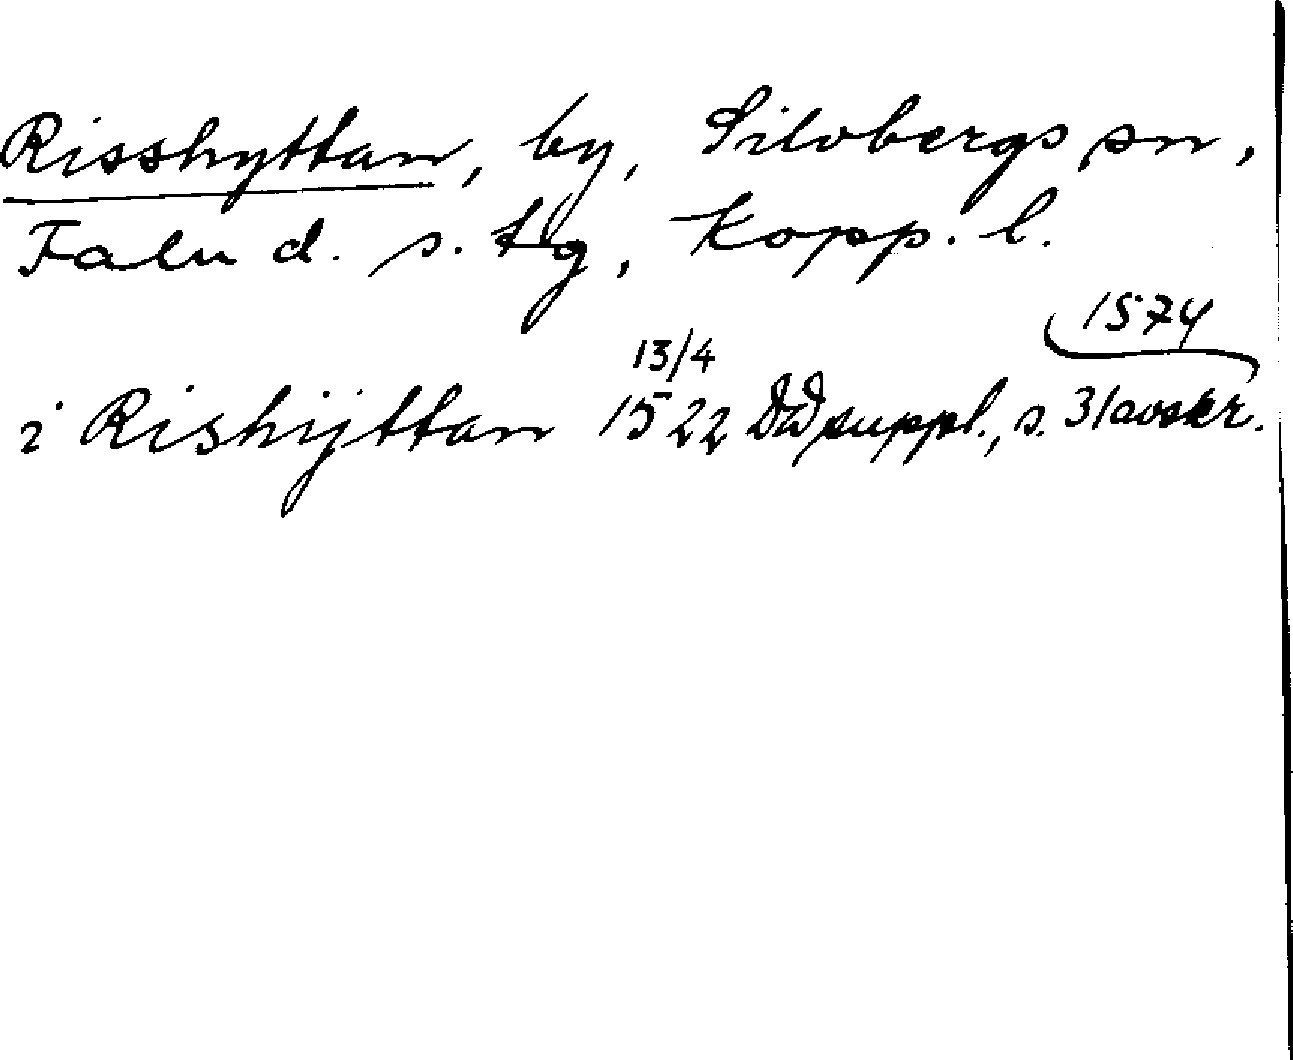 Risshyttan, by, Silvbergs sn,
Falu d. s. tg, Kopp. l.
1574
13/4
i Rishijttan 1522 DD suppl., s. 31 avskr.